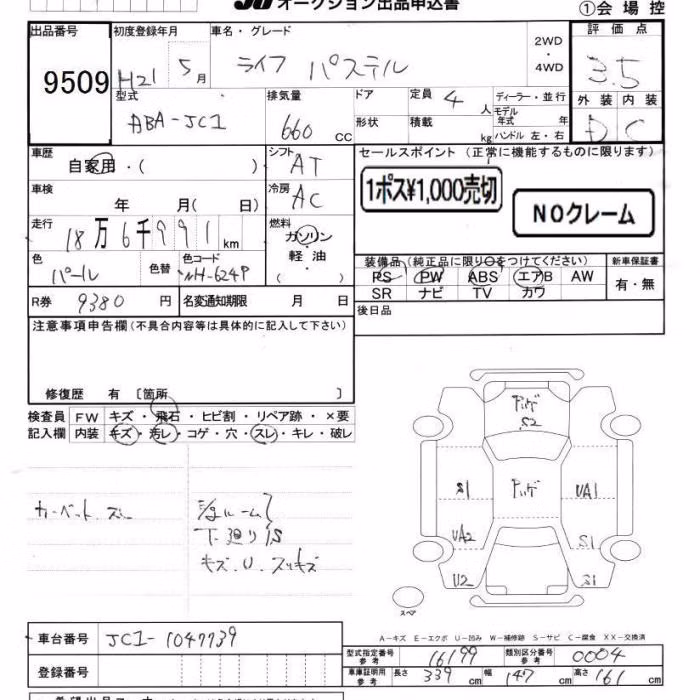 オークション出品申込書
①会場控
出品番号
9509
初度登録年月
H21 5月
車名・グレード
ライフ パステル
2WD
・
4WD
評価点
3.5
外装 内装
D C
型式
ABA-JC1
排気量
660 cc
ドア
形状
定員 4 人
積載 kg
ディーラー・並行
モデル年式 年
ハンドル 左・右
車歴
自家用・( )
シフト
AT
車検
年 月( 日)
冷房
AC
走行
18万6千991km
燃料
ガソリン
・
軽油
( )
色
パール
色替
色コード
NH-624P
R券
9380円
名変通知期限 月 日
セールスポイント (正常に機能するものに限ります)
1ポス¥1,000売切
NOクレーム
装備品(純正品に限り○をつけてください)
PS PW ABS エアB AW
SR ナビ TV カワ
新車保証書
有・無
後日品
注意事項申告欄(不具合内容等は具体的に記入して下さい)
修復歴 有 〔箇所 〕
検査員 FW キズ・飛石・ヒビ割・リペア跡・×要
記入欄 内装 キズ・汚レ・コゲ・穴・スレ・キレ・破レ
下廻りS
S2
S1
UA1
UA2
S1
U2
S1
スペア
A-キズ E-エクボ U-凹み W-補修跡 S-サビ C-腐食 XX-交換済
車台番号
JC1-1047739
登録番号
型式指定番号
参考
16199
類別区分番号
参考
0004
車庫証明用
参考
長さ 339 cm
幅 147 cm
高さ 161 cm